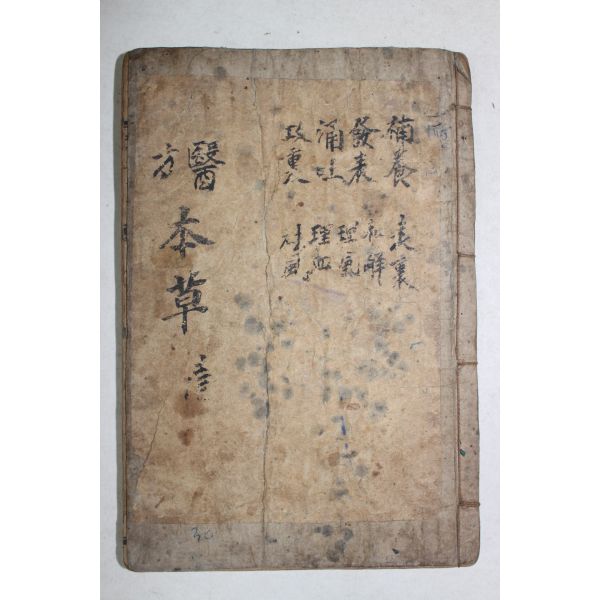 補養 表裏
發表 和解
涌吐 理氣
攻裏 理血
祛風
醫
方
本草
意
30